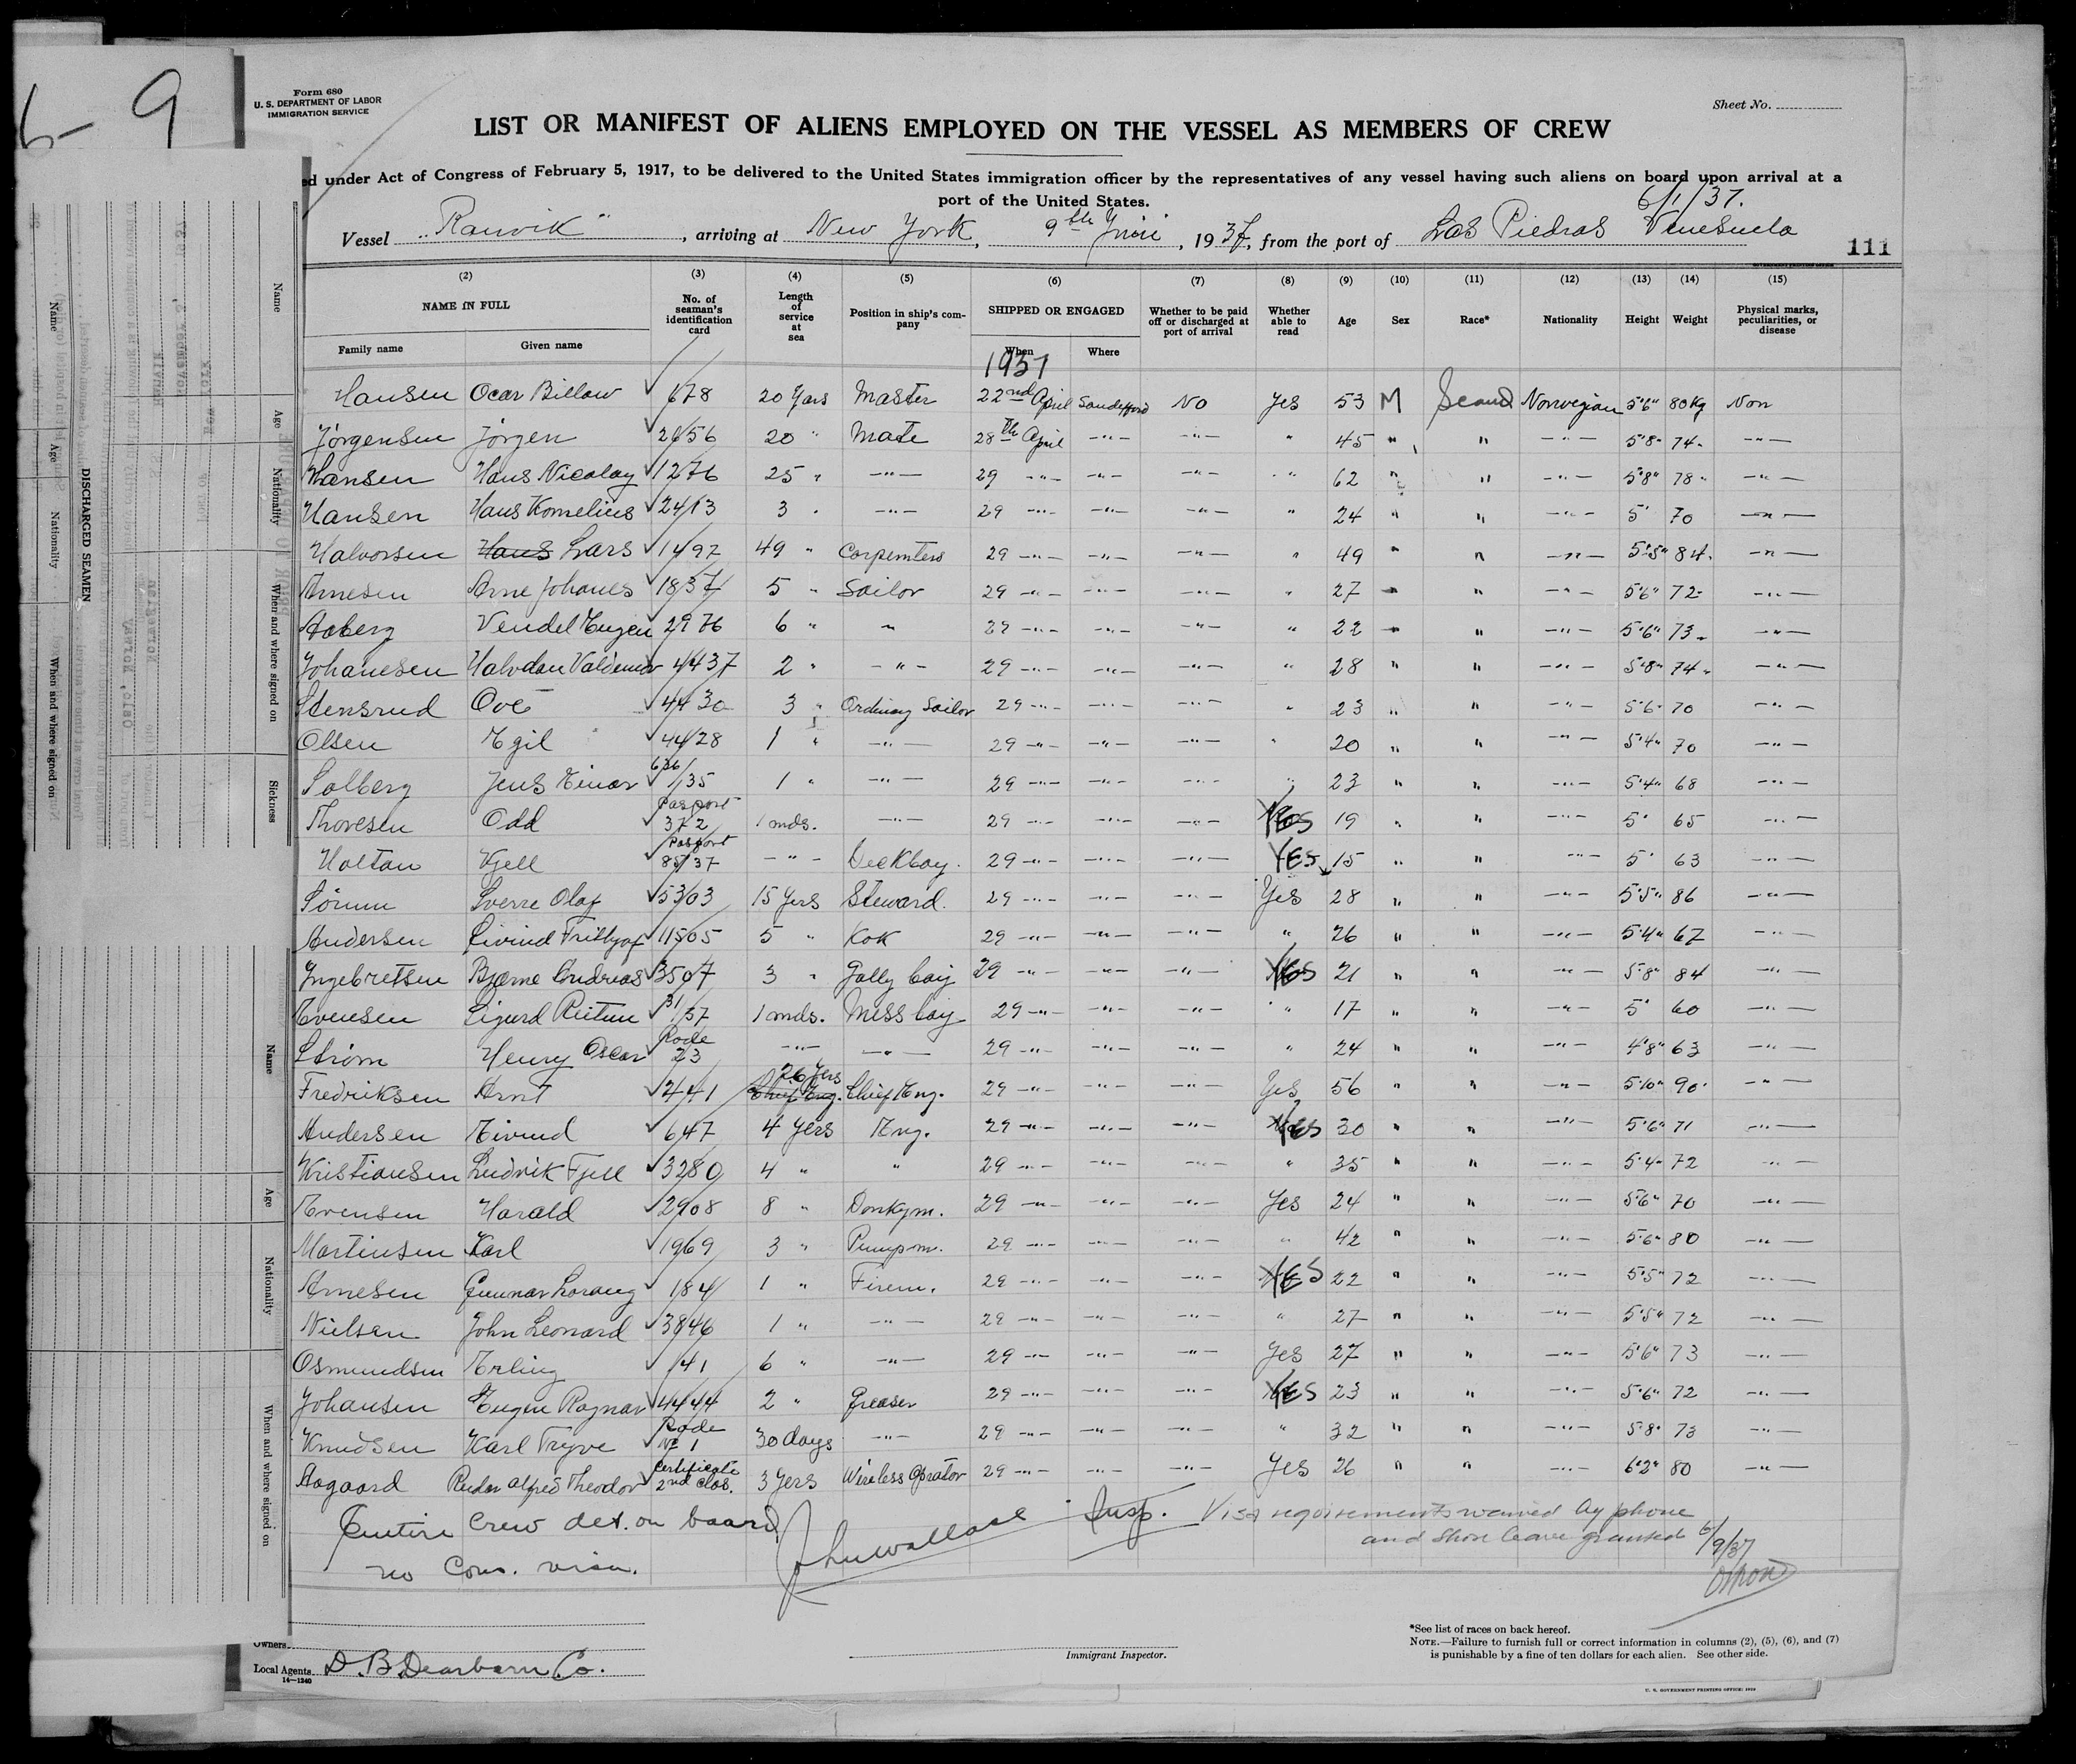 6 - 9
Form 680
U. S. DEPARTMENT OF LABOR
IMMIGRATION SERVICE
Sheet No.
LIST OR MANIFEST OF ALIENS EMPLOYED ON THE VESSEL AS MEMBERS OF CREW
ed under Act of Congress of February 5, 1917, to be delivered to the United States immigration officer by the representatives of any vessel having such aliens on board upon arrival at a
port of the United States.
6/1/37.
Vessel "Ranvik", arriving at New York, 9th Juni, 1937, from the port of Las Piedras Venesuela
111
(2) (3) (4) (5) (6) (7) (8) (9) (10) (11) (12) (13) (14) (15)
NAME IN FULL No. of seaman's identification card Length of service at sea Position in ship's company SHIPPED OR ENGAGED Whether to be paid off or discharged at port of arrival Whether able to read Age Sex Race* Nationality Height Weight Physical marks, peculiarities, or disease
Family name Given name When Where
1937
Hansen Ocar Billow 678 20 Yars Master 22nd April Sandefjord No Yes 53 M Scand Norwegian 5'6" 80 Kg Non
Jörgensen Jörgen 2656 20 " Mate 28th April -"- -"- " 45 " " -"- 5'8" 74 -"-
Hansen Hans Nicolay 1276 25 " -"- 29 -"- -"- -"- " 62 " " -"- 5'8" 78 " -"-
Hansen Hans Kornelius 2413 3 " -"- 29 -"- -"- -"- " 24 " " -"- 5' 70 -"-
Halvorsen Hans Lars 1497 49 " Carpenters 29 -"- -"- -"- " 49 " " -"- 5'5" 84 -"-
Arnesen Arne Johanes 1837 5 " Sailor 29 -"- -"- -"- " 27 " " -"- 5'6" 72 -"-
Aaberg Vendel Eugen 2976 6 " " 29 -"- -"- -"- " 22 " " -"- 5'6" 73 -"-
Johanesen Halvdan Valdemar 4437 2 " -"- 29 -"- -"- -"- " 28 " " -"- 5'8" 74 -"-
Stensrud Ove 4430 3 " Ordinary Sailor 29 -"- -"- -"- " 23 " " -"- 5'6" 70 -"-
Olsen Egil 4428 1 " -"- 29 -"- -"- -"- " 20 " " -"- 5'4" 70 -"-
Solberg Jens Einar 636/135 1 " -"- 29 -"- -"- -"- " 23 " " -"- 5'4" 68 -"-
Thoresen Odd Pasport 372 1 mds. -"- 29 -"- -"- -"- Yes 19 " " -"- 5' 65 -"-
Holtan Kjell Pasport 85/37 -"- Deckboy. 29 -"- -"- -"- YES 15 " " -"- 5' 63 -"-
Sörum Sverre Olaf 5303 15 Yers Steward. 29 -"- -"- -"- Yes 28 " " -"- 5'5" 86 -"-
Andersen Eivind Frithjof 11505 5 " Kok 29 -"- -"- -"- " 26 " " -"- 5'4" 67 -"-
Ingebretsen Bjarne Andreas 3507 3 " Gally boy 29 -"- -"- -"- Yes 21 " " -"- 5'8" 84 -"-
Evensen Sigurd Reitun 31/37 1 mds. Mess boy 29 -"- -"- -"- " 17 " " -"- 5' 60 -"-
Ström Henry Oscar Rode 23 -"- -"- 29 -"- -"- -"- " 24 " " -"- 4'8" 63 -"-
Fredriksen Arnt 2441 Chief Eng. 26 Yers Chief Eng. 29 -"- -"- -"- Yes 56 " " -"- 5'10" 90 -"-
Andersen Eivind 647 4 Yers Eng. 29 -"- -"- -"- Yes 30 " " -"- 5'6" 71 -"-
Kristiansen Ludvik Fjell 3280 4 " " 29 -"- -"- -"- " 35 " " -"- 5'4" 72 -"-
Evensen Harald 2908 8 " Donkym. 29 -"- -"- -"- Yes 24 " " -"- 5'6" 70 -"-
Martinsen Karl 1969 3 " Pumpm. 29 -"- -"- -"- " 42 " " -"- 5'6" 80 -"-
Arnesen Gunnar Lorang 184 1 " Firem. 29 -"- -"- -"- YES 22 " " -"- 5'5" 72 -"-
Nielsen John Leonard 3846 1 " -"- 29 -"- -"- -"- " 27 " " -"- 5'5" 72 -"-
Osmundsen Erling 141 6 " -"- 29 -"- -"- -"- Yes 27 " " -"- 5'6" 73 -"-
Johansen Eugen Ragnar 4444 2 " Greaser 29 -"- -"- -"- YES 23 " " -"- 5'6" 72 -"-
Knudsen Karl Tryve Rode No 1 30 days -"- 29 -"- -"- -"- " 32 " " -"- 5'8" 73 -"-
Aagaard Reidar Alfred Theodor Certificate 2nd Clas. 3 Yers Wireless Oprator 29 -"- -"- -"- Yes 26 " " -"- 6'2" 80 -"-
Entire Crew det. on board
no Cons. visa.
John Wallace Insp.
Visa requirements waived by phone
and Shore leave granted 6/9/37
Owners
Local Agents D. B. Dearborn Co.
14—1240
Immigrant Inspector.
*See list of races on back hereof.
NOTE.—Failure to furnish full or correct information in columns (2), (5), (6), and (7)
is punishable by a fine of ten dollars for each alien. See other side.
Name
Age
Nationality
When and where signed on
Sickness
DISCHARGED SEAMEN
Name
Age
Nationality
When and where signed on
Name
Age
Nationality
When and where signed on